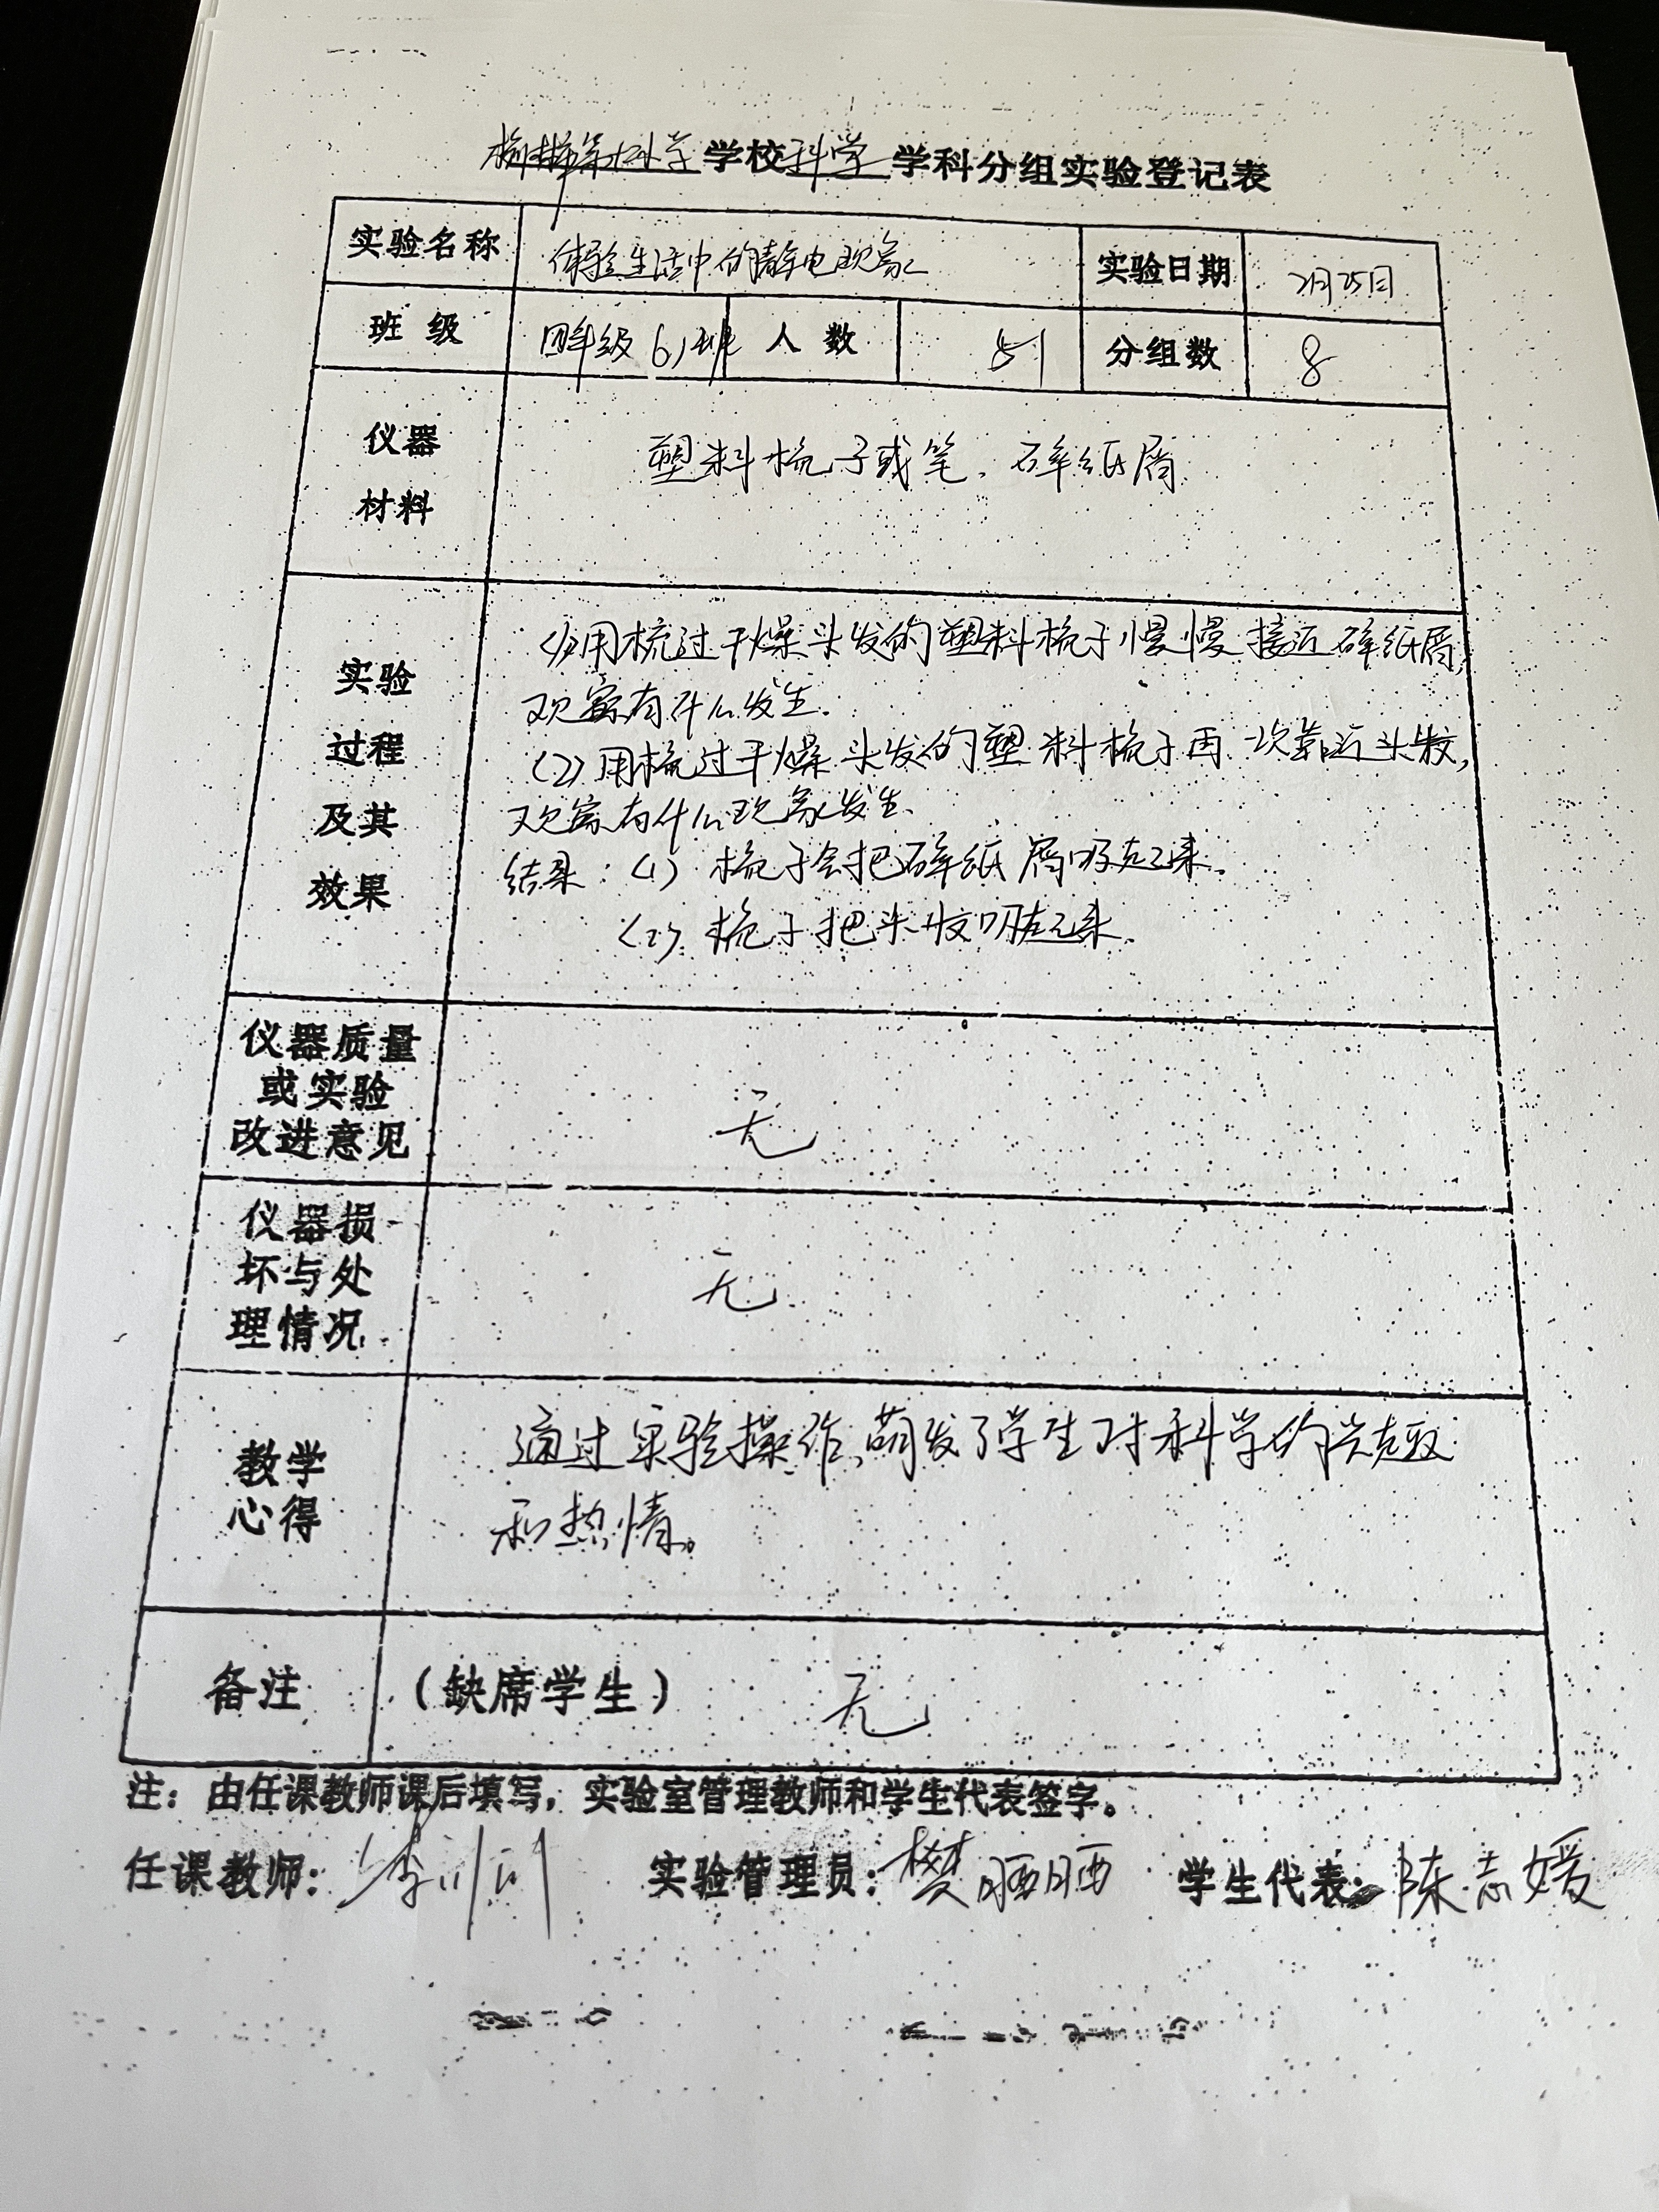 学校科学学科分组实验登记表
实验名称 体验生活中的静电现象 实验日期 2月25日
班级 四年级6班 人数 51 分组数 8
仪器
材料
塑料梳子或笔、碎纸屑
实验
过程
及其
效果
(1)用梳过干燥头发的塑料梳子慢慢接近碎纸屑,
观察有什么发生.
(2)用梳过干燥头发的塑料梳子再一次靠近头发,
观察有什么现象发生.
结果:(1)梳子会把碎纸屑吸起来.
(2)梳子把头发吸起来.
仪器质量
或实验
改进意见
无
仪器损
坏与处
理情况
无
教学
心得
通过实验操作,萌发了学生对科学的兴趣
和热情。
备注 (缺席学生) 无
注:由任课教师课后填写,实验室管理教师和学生代表签字。
任课教师: 李 实验管理员:樊晒晒 学生代表:陈志媛